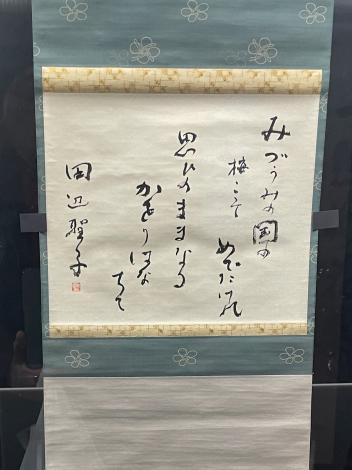 みづうみの国の
梅こそ
めでたけれ
思ひのままなる
かをりはな
ちて
田辺聖子